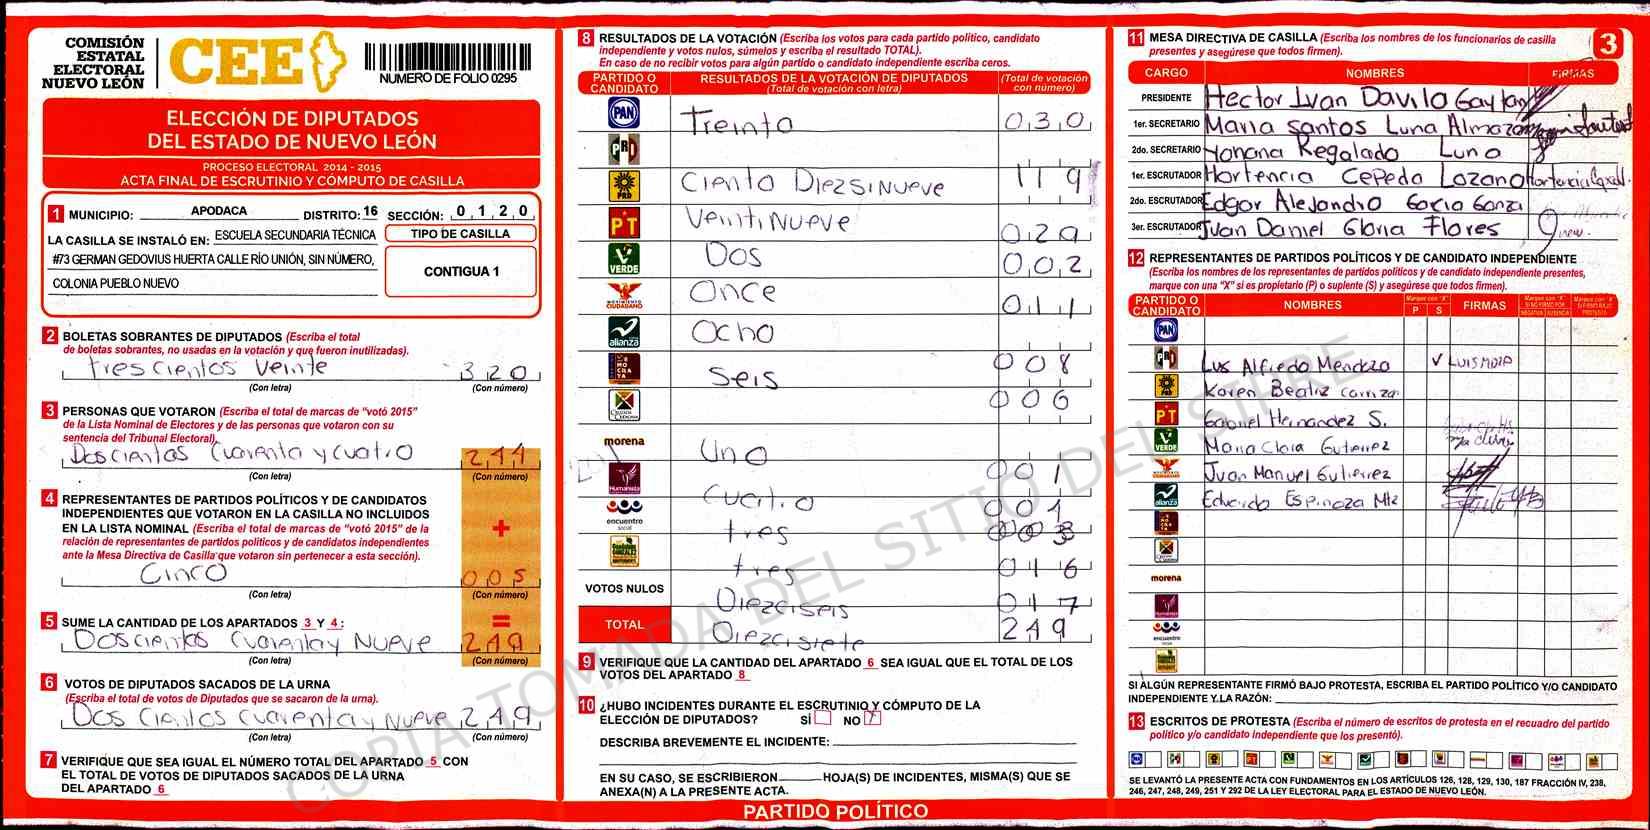 COMISIÓN
ESTATAL
ELECTORAL
NUEVO LEÓN
CEE
NUMERO DE FOLIO 0295
ELECCIÓN DE DIPUTADOS
DEL ESTADO DE NUEVO LEÓN
PROCESO ELECTORAL 2014 - 2015
ACTA FINAL DE ESCRUTINIO Y CÓMPUTO DE CASILLA
1 MUNICIPIO: APODACA DISTRITO: 16 SECCIÓN: 0120
LA CASILLA SE INSTALÓ EN: ESCUELA SECUNDARIA TÉCNICA
#73 GERMAN GEDOVIUS HUERTA CALLE RÍO UNIÓN, SIN NÚMERO,
COLONIA PUEBLO NUEVO
TIPO DE CASILLA
CONTIGUA 1
2 BOLETAS SOBRANTES DE DIPUTADOS (Escriba el total
de boletas sobrantes, no usadas en la votación y que fueron inutilizadas).
trescientos Veinte 320
(Con letra) (Con número)
3 PERSONAS QUE VOTARON (Escriba el total de marcas de "votó 2015"
de la Lista Nominal de Electores y de las personas que votaron con su
sentencia del Tribunal Electoral).
Doscientos Cuarenta y cuatro 244
(Con letra) (Con número)
4 REPRESENTANTES DE PARTIDOS POLÍTICOS Y DE CANDIDATOS
INDEPENDIENTES QUE VOTARON EN LA CASILLA NO INCLUIDOS
EN LA LISTA NOMINAL (Escriba el total de marcas de "votó 2015" de la
relación de representantes de partidos políticos y de candidatos independientes
ante la Mesa Directiva de Casilla que votaron sin pertenecer a esta sección).
+
Cinco 005
(Con letra) (Con número)
5 SUME LA CANTIDAD DE LOS APARTADOS 3 Y 4: =
Doscientos Cuarenta y Nueve 249
(Con letra) (Con número)
6 VOTOS DE DIPUTADOS SACADOS DE LA URNA
(Escriba el total de votos de Diputados que se sacaron de la urna).
Dos cientos cuarenta y Nueve 249
(Con letra) (Con número)
7 VERIFIQUE QUE SEA IGUAL EL NÚMERO TOTAL DEL APARTADO 5 CON
EL TOTAL DE VOTOS DE DIPUTADOS SACADOS DE LA URNA
DEL APARTADO 6
8 RESULTADOS DE LA VOTACIÓN (Escriba los votos para cada partido político, candidato
independiente y votos nulos, súmelos y escriba el resultado TOTAL).
En caso de no recibir votos para algún partido o candidato independiente escriba ceros.
PARTIDO O CANDIDATO
RESULTADOS DE LA VOTACIÓN DE DIPUTADOS
(Total de votación con letra)
(Total de votación con número)
PAN Treinta 030
PRI Ciento Diezsinueve 119
PRD Veinti Nueve
PT Dos 029
VERDE Once 002
MOVIMIENTO CIUDADANO Ocho 011
alianza Seis 008
006
morena Uno 001
Humanista Cuatro 001
encuentro social tres 003
tres 016
VOTOS NULOS Diezciseis 017
TOTAL Diezcisiete 249
9 VERIFIQUE QUE LA CANTIDAD DEL APARTADO 6 SEA IGUAL QUE EL TOTAL DE LOS
VOTOS DEL APARTADO 8
10 ¿HUBO INCIDENTES DURANTE EL ESCRUTINIO Y CÓMPUTO DE LA
ELECCIÓN DE DIPUTADOS? SÍ NO
DESCRIBA BREVEMENTE EL INCIDENTE:
EN SU CASO, SE ESCRIBIERON HOJA(S) DE INCIDENTES, MISMA(S) QUE SE
ANEXA(N) A LA PRESENTE ACTA.
PARTIDO POLÍTICO
11 MESA DIRECTIVA DE CASILLA (Escriba los nombres de los funcionarios de casilla
presentes y asegúrese que todos firmen).
3
CARGO NOMBRES FIRMAS
PRESIDENTE Hector Ivan Davila Gaytan
1er. SECRETARIO Maria Santos Luna Almazan
2do. SECRETARIO Yohana Regalado Luna
1er. ESCRUTADOR Hortencia Cepeda Lozano
2do. ESCRUTADOR Edgar Alejandro Garcia Garza
3er. ESCRUTADOR Juan Daniel Gloria Flores
12 REPRESENTANTES DE PARTIDOS POLÍTICOS Y DE CANDIDATO INDEPENDIENTE
(Escriba los nombres de los representantes de partidos políticos y de candidato independiente presentes,
marque con una "X" si es propietario (P) o suplente (S) y asegúrese que todos firmen).
PARTIDO O CANDIDATO NOMBRES Marque con "X" P S FIRMAS
PAN
PRI Luis Alfredo Mendoza
PRD Karen Beatriz
PT Gabriel Hernandez S.
VERDE Maria Clara Gutierrez
Juan Manuel Gutierrez
alianza Eduardo Espinoza Mtz
morena
Humanista
encuentro social
SI ALGÚN REPRESENTANTE FIRMÓ BAJO PROTESTA, ESCRIBA EL PARTIDO POLÍTICO Y/O CANDIDATO
INDEPENDIENTE Y LA RAZÓN:
13 ESCRITOS DE PROTESTA (Escriba el número de escritos de protesta en el recuadro del partido
político y/o candidato independiente que los presentó).
SE LEVANTÓ LA PRESENTE ACTA CON FUNDAMENTOS EN LOS ARTÍCULOS 126, 128, 129, 130, 187 FRACCIÓN IV, 238,
246, 247, 248, 249, 251 Y 292 DE LA LEY ELECTORAL PARA EL ESTADO DE NUEVO LEÓN.
COPIA TOMADA DEL SITIO DEL SIPRE